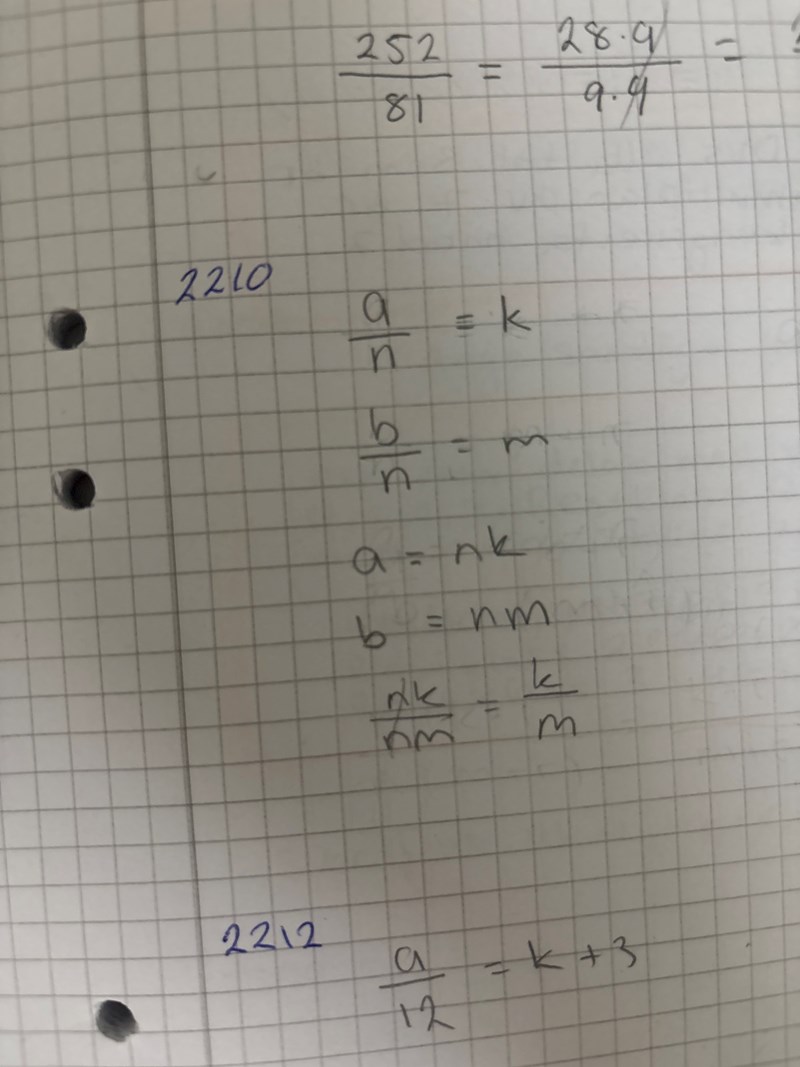 252/81 = 28·9/9·9 =
2210
a/n = k
b/n = m
a = nk
b = nm
nk/nm = k/m
2212
a/12 = k + 3